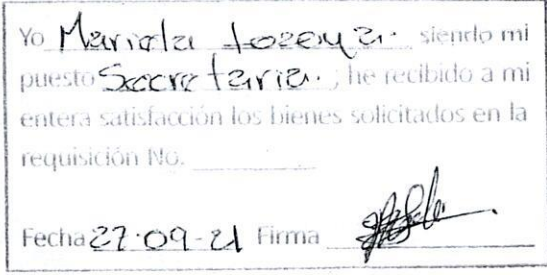 Yo Mariela Lozeya. siendo mi
puesto Secretaria., he recibido a mi
entera satisfacción los bienes solicitados en la
requisición No.
Fecha 27-09-21 Firma